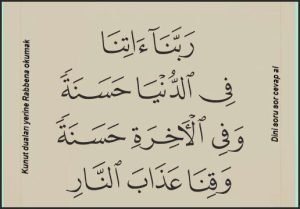 رَبَّنَآ ءَاتِنَا
فِى ٱلدُّنْيَا حَسَنَةً
وَفِى ٱلْأَخِرَةِ حَسَنَةً
وَقِنَا عَذَابَ ٱلنَّارِ
Kunut duaları yerine Rabbena okumak
Dini soru sor cevap al